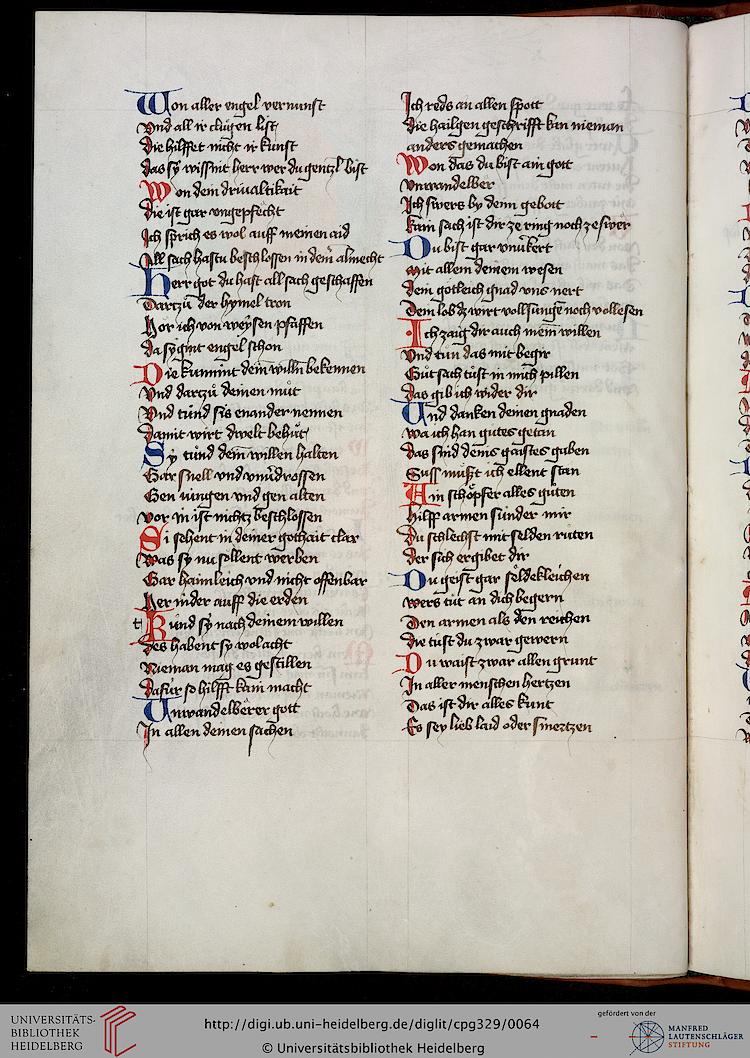 Won aller engel vernunft
Vnd all ir clůgen list
Die hilffet nicht ir kunst
Das sy wissint herr wer du gentzl bist
Won dem driualtikait
Die ist gar vngepfecht
Ich sprich es wol auff meinen aid
All sach hastu beschlossen in dem almecht
Herr got du hast all sach geschaffen
Dartzů der hymel tron
Hor ich von weysen pfaffen
Da sy gint engel schon
Die kummt dein willn bekennen
Vnd dartzů deinen můt
Vnd tůnd sis enander nennen
Damit wirt dwelt behůt
Sy tůnd dein willen halten
Gar snell vnd vnuerdrossen
Gen iungen vnd gen alten
Vor in ist nichtz beschlossen
Si sehent in deiner gothait clar
Was sy nu sollent werben
Gar haimleich vnd nicht offenbar
Her nider auff die erden
t Kund sy nach deinem willen
Des habent sy wol acht
Nieman mag es gestillen
Dafůr so hilfft kain macht
Vnwandelberer gott
In allen deinen sachen
Ich reds an allen spott
Die hailgen geschrifft kan nieman
anders gemachen
Won das du bist ain gott
Vnwandelber
Ich swers by dem gebott
Kain sach ist dir ze ring noch ze swer
Du bist gar vnuerkert
Mit allem deinem wesen
Dein gotleich gnad vns nert
Dein lob dz wirt volsungen noch vollesen
Ich zaig dir auch mein willen
Vnd tun das mit begir
Gůt sach tůst in mich pillen
Das gib ich wider dir
Vnd danken deinen gnaden
Wa ich han gutes getan
Das sind deins gaistes gaben
Suss můst ich ellent stan
Ain schöpfer alles guten
Hilff armen sunder mir
Du schlechst mit selden růten
Der sich ergibet dir
Du geist gar söldekleichen
Wers tůt an dich begern
Den armen als den reichen
Die tůst du zwar gewern
Du waist zwar allen grunt
In aller menschen hertzen
Das ist dir alles kunt
Es sey lieb laid oder smertzen
UNIVERSITÄTS-
BIBLIOTHEK
HEIDELBERG
http://digi.ub.uni-heidelberg.de/diglit/cpg329/0064
© Universitätsbibliothek Heidelberg
gefördert von der
MANFRED
LAUTENSCHLÄGER
STIFTUNG